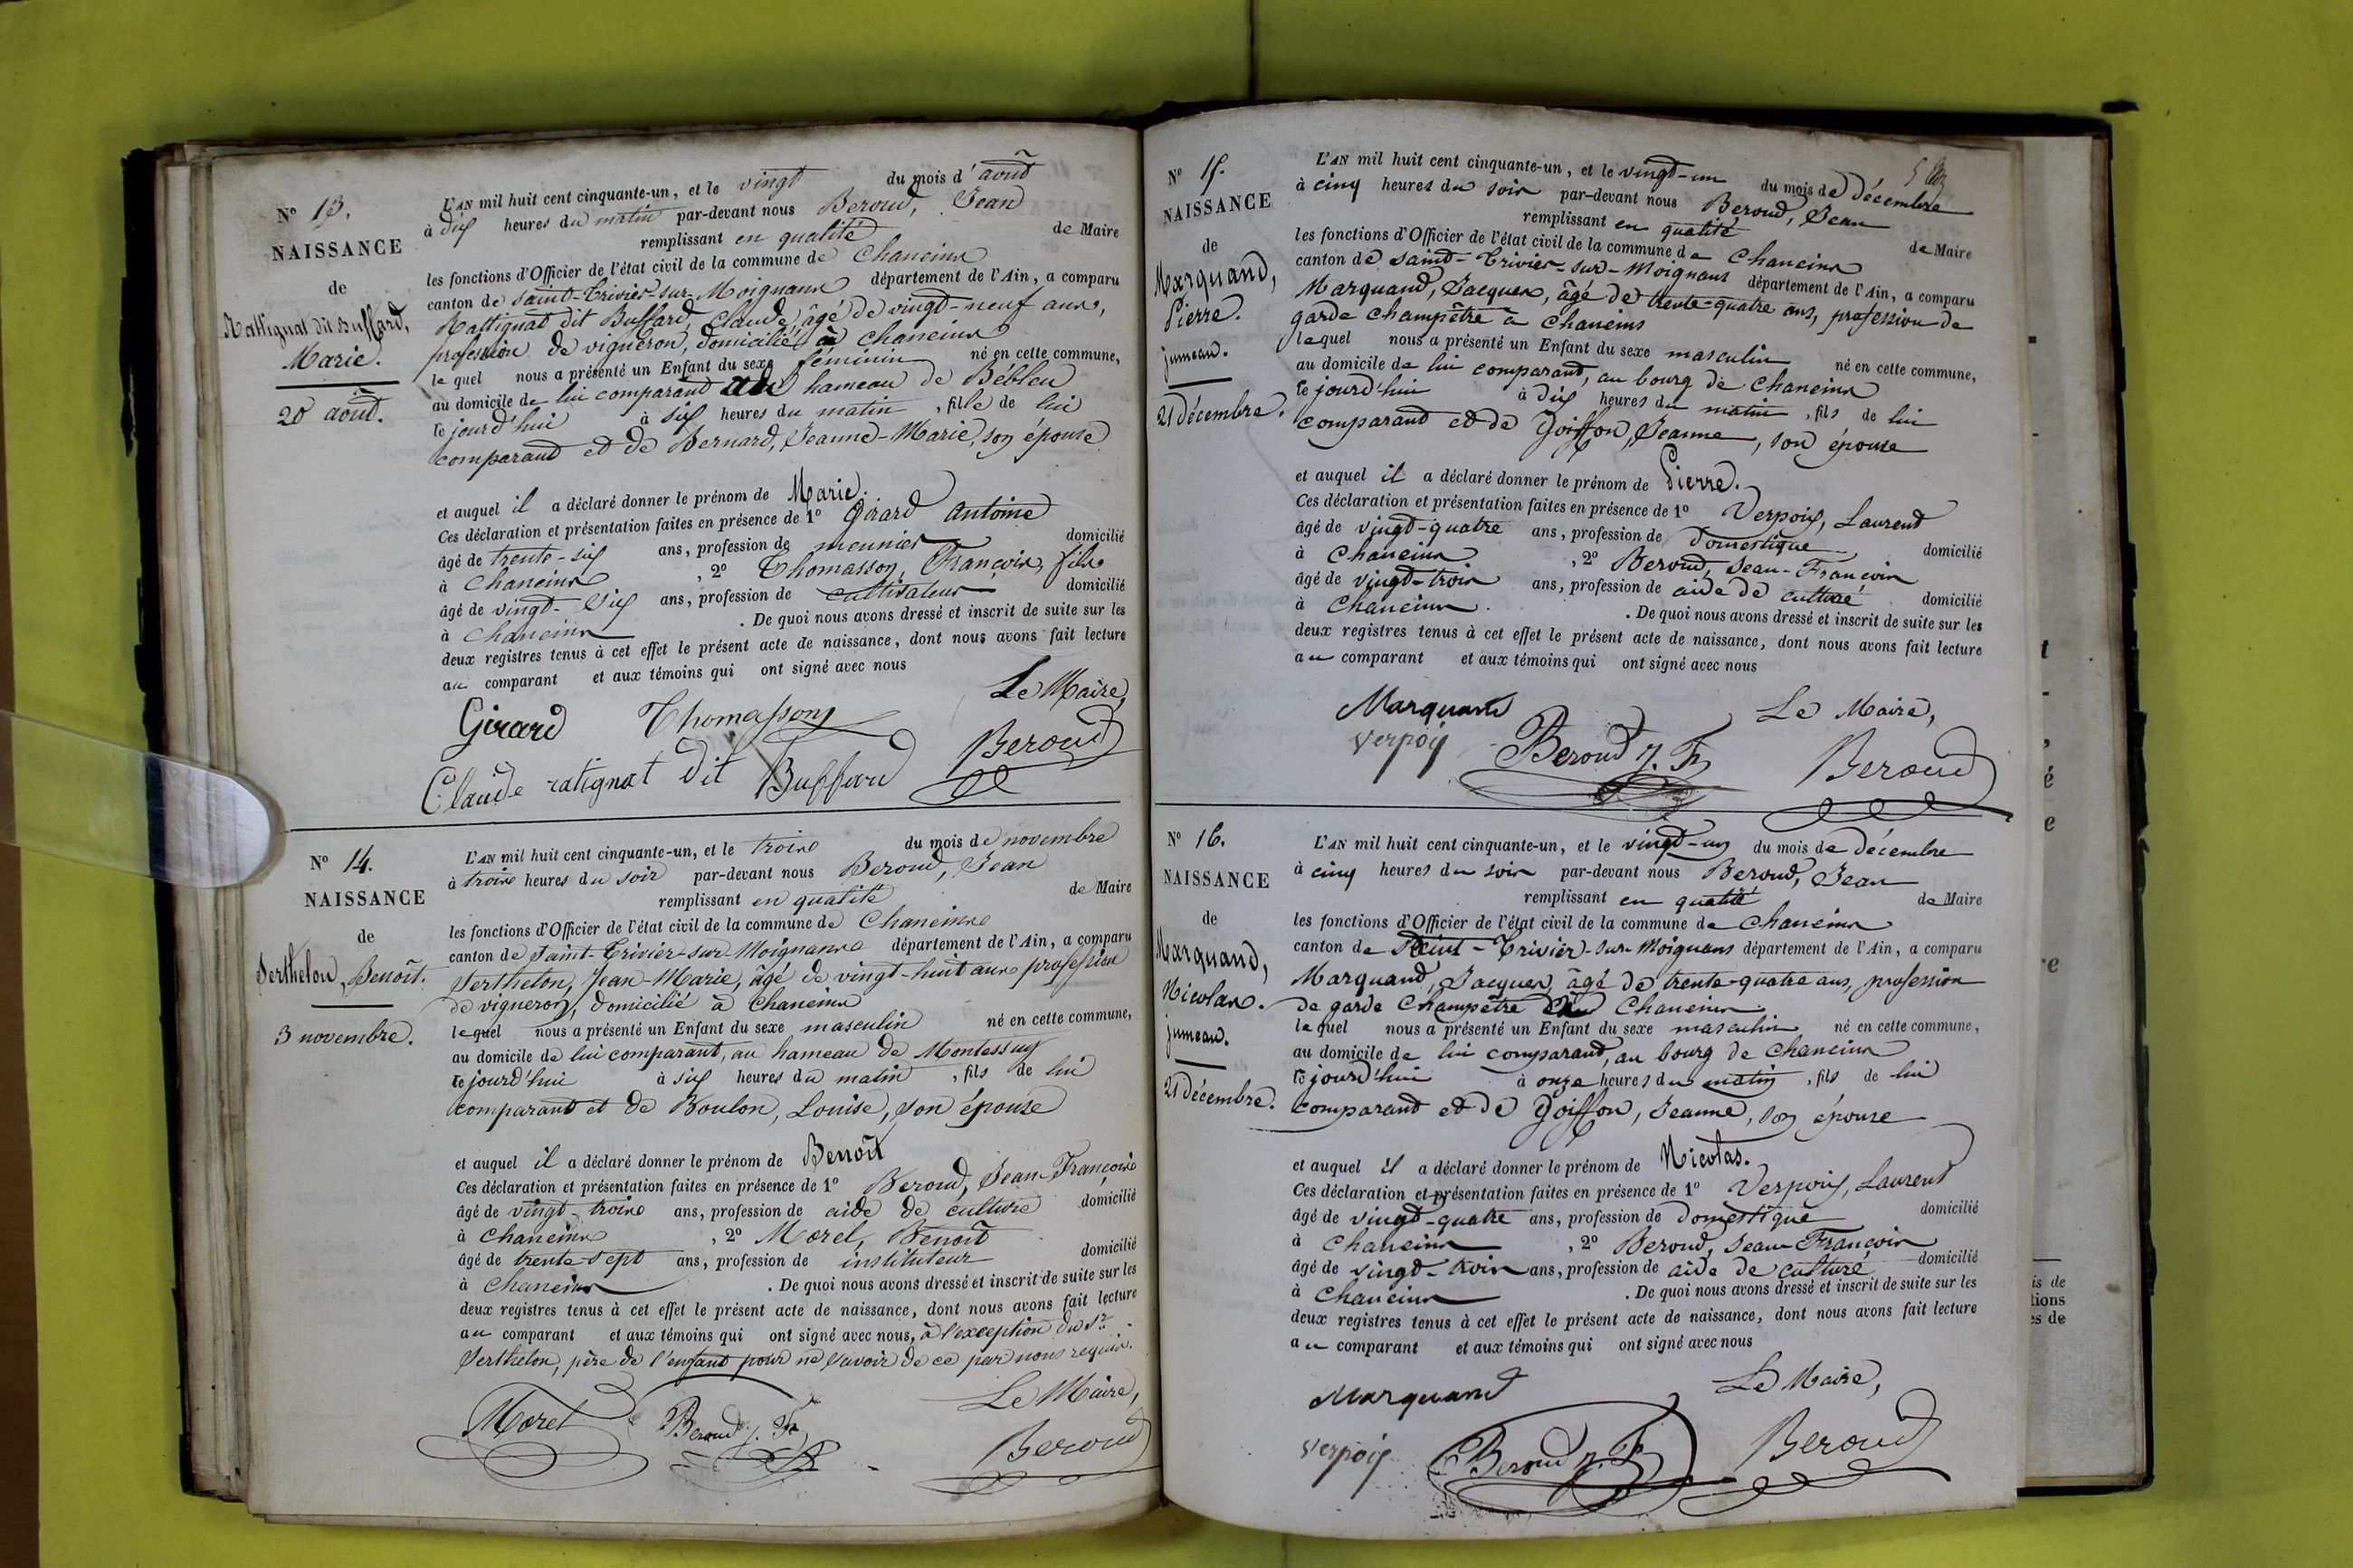 N° 13.
NAISSANCE
de
Rattignat dit Buffard,
Marie.
20 août.
L'AN mil huit cent cinquante-un, et le vingt du mois d'août
à dix heures du matin par-devant nous Beroud, Jean
remplissant en qualité de Maire
les fonctions d'Officier de l'état civil de la commune de Chaneins
canton de Saint-Trivier-sur-Moignans département de l'Ain, a comparu
Rattignat dit Buffard, Claude, âgé de vingt-neuf ans,
profession de vigneron, domicilié à Chaneins
lequel nous a présenté un Enfant du sexe féminin né en cette commune,
au domicile de lui comparant au hameau de Bébleu
ce jourd'hui à six heures du matin, fille de lui
comparant et de Bernard, Jeanne-Marie, son épouse
et auquel il a déclaré donner le prénom de Marie.
Ces déclaration et présentation faites en présence de 1° Girard Antoine
âgé de trente-six ans, profession de meunier domicilié
à Chaneins, 2° Thomasson, François, fils
âgé de vingt-six ans, profession de cultivateur domicilié
à Chaneins. De quoi nous avons dressé et inscrit de suite sur les
deux registres tenus à cet effet le présent acte de naissance, dont nous avons fait lecture
au comparant et aux témoins qui ont signé avec nous
Le Maire,
Girard Thomasson Beroud
Claude ratignat dit Buffard
N° 14.
NAISSANCE
de
Serthelon, Benoît.
3 novembre.
L'AN mil huit cent cinquante-un, et le trois du mois de novembre
à trois heures du soir par-devant nous Beroud, Jean
remplissant en qualité de Maire
les fonctions d'Officier de l'état civil de la commune de Chaneins
canton de Saint-Trivier-sur-Moignans département de l'Ain, a comparu
Serthelon, Jean-Marie, âgé de vingt-huit ans profession
de vigneron, domicilié à Chaneins
lequel nous a présenté un Enfant du sexe masculin né en cette commune,
au domicile de lui comparant, au hameau de Montessuy
ce jourd'hui à six heures du matin, fils de lui
comparant et de Boulon, Louise, son épouse
et auquel il a déclaré donner le prénom de Benoît
Ces déclaration et présentation faites en présence de 1° Beroud, Jean-François
âgé de vingt-trois ans, profession de aide de culture domicilié
à Chaneins, 2° Morel, Benoît
âgé de trente-sept ans, profession de instituteur domicilié
à Chaneins. De quoi nous avons dressé et inscrit de suite sur les
deux registres tenus à cet effet le présent acte de naissance, dont nous avons fait lecture
au comparant et aux témoins qui ont signé avec nous, à l'exception du Sr
Serthelon, père de l'enfant pour ne savoir de ce par nous requis.
Le Maire,
Morel Beroud J. Fs Beroud
N° 15.
NAISSANCE
de
Marquand,
Pierre.
jumeau.
21 décembre.
L'AN mil huit cent cinquante-un, et le vingt-un du mois de décembre
à cinq heures du soir par-devant nous Beroud, Jean
remplissant en qualité de Maire
les fonctions d'Officier de l'état civil de la commune de Chaneins
canton de Saint-Trivier-sur-Moignans département de l'Ain, a comparu
Marquand, Jacques, âgé de trente-quatre ans, profession de
garde champêtre à Chaneins
lequel nous a présenté un Enfant du sexe masculin né en cette commune,
au domicile de lui comparant, au bourg de Chaneins
ce jourd'hui à dix heures du matin, fils de lui
comparant et de Goiffon, Jeanne, son épouse
et auquel il a déclaré donner le prénom de Pierre.
Ces déclaration et présentation faites en présence de 1° Verpoix, Laurent
âgé de vingt-quatre ans, profession de domestique domicilié
à Chaneins, 2° Beroud, Jean-François
âgé de vingt-trois ans, profession de aide de culture domicilié
à Chaneins. De quoi nous avons dressé et inscrit de suite sur les
deux registres tenus à cet effet le présent acte de naissance, dont nous avons fait lecture
au comparant et aux témoins qui ont signé avec nous
Marquand Le Maire,
Verpoix Beroud J. Fs Beroud
N° 16.
NAISSANCE
de
Marquand,
Nicolas.
jumeau.
21 décembre.
L'AN mil huit cent cinquante-un, et le vingt-un du mois de décembre
à cinq heures du soir par-devant nous Beroud, Jean
remplissant en qualité de Maire
les fonctions d'Officier de l'état civil de la commune de Chaneins
canton de Saint-Trivier-sur-Moignans département de l'Ain, a comparu
Marquand, Jacques, âgé de trente-quatre ans, profession
de garde Champêtre à Chaneins
lequel nous a présenté un Enfant du sexe masculin né en cette commune,
au domicile de lui comparant, au bourg de Chaneins
ce jourd'hui à onze heures du matin, fils de lui
comparant et de Goiffon, Jeanne, son épouse
et auquel il a déclaré donner le prénom de Nicolas.
Ces déclaration et présentation faites en présence de 1° Verpoix, Laurent
âgé de vingt-quatre ans, profession de domestique domicilié
à Chaneins, 2° Beroud, Jean-François
âgé de vingt-trois ans, profession de aide de culture domicilié
à Chaneins. De quoi nous avons dressé et inscrit de suite sur les
deux registres tenus à cet effet le présent acte de naissance, dont nous avons fait lecture
au comparant et aux témoins qui ont signé avec nous
Marquand Le Maire,
Verpoix Beroud J. Fs Beroud